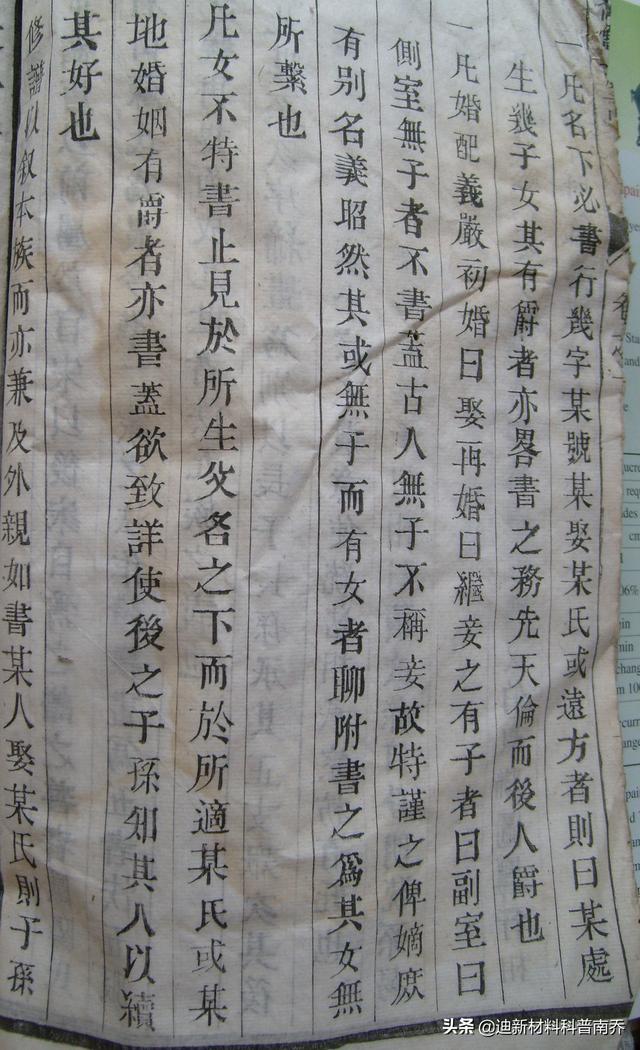 一凡名下必書行幾字某號某娶某氏或遠方者則曰某處
生幾子女其有爵者亦畧書之務先天倫而後人爵也
一凡婚配義嚴初婚曰娶再婚曰繼妾之有子者曰副室曰
側室無子者不書蓋古人無子不稱妾故特謹之俾嫡庶
有别名義昭然其或無子而有女者聊附書之爲其女無
所繫也
凡女不特書止見於所生父名之下而於所適某氏或某
地婚姻有爵者亦書蓋欲致詳使後之子孫知其人以續
其好也
修譜以叙本族而亦兼及外親如書某人娶某氏則子孫
頭条 @迪新材料科普南乔